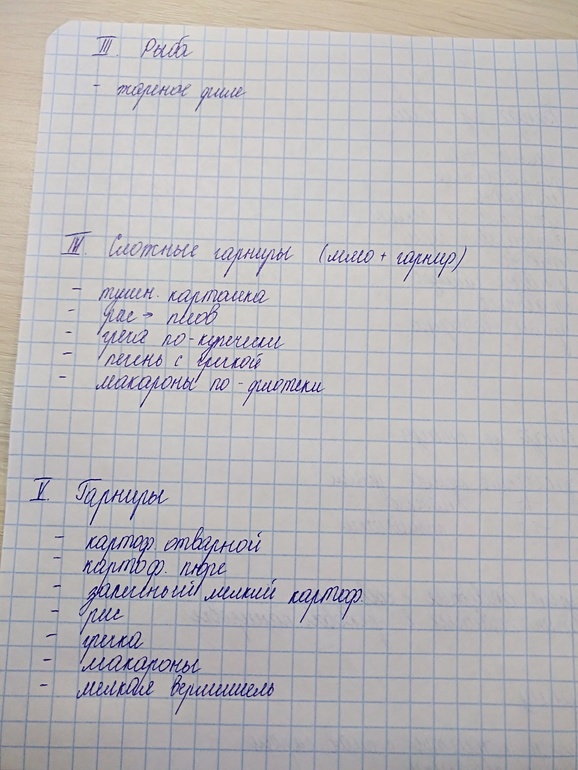 III. Рыба
- жареное филе
IV. Сложные гарниры (мясо + гарнир)
- тушен. картошка
- рис → плов
- греча по-купечески
- печень с гречкой
- макароны по-флотски
V. Гарниры
- картоф. отварной
- картоф. пюре
- запечный мелкий картоф
- рис
- гречка
- макароны
- мелкая вермишель